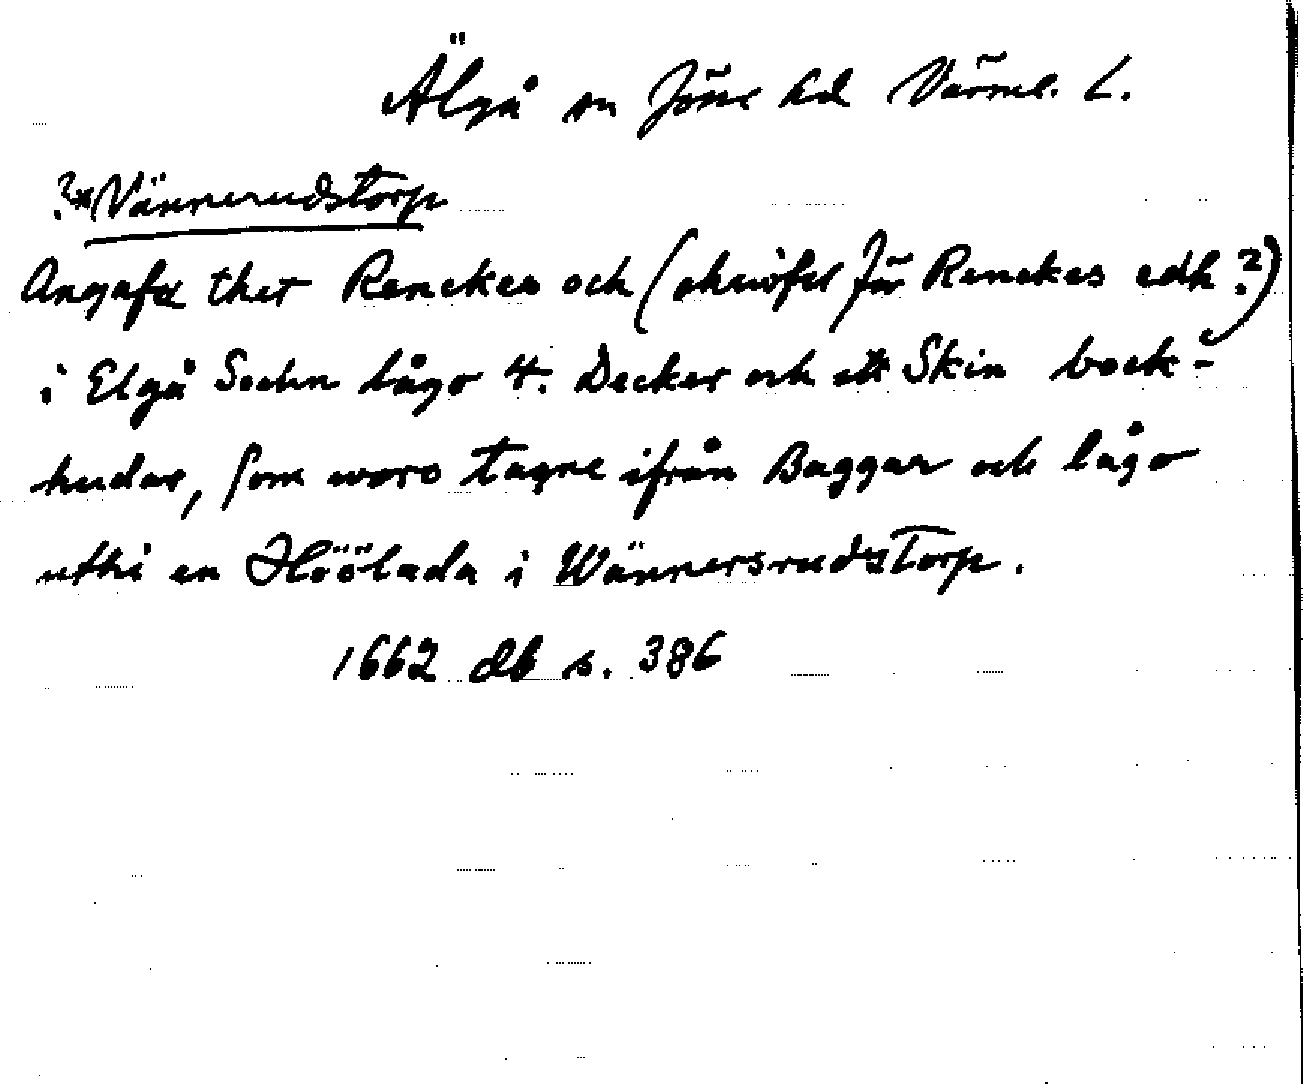 Älgå sn Jösse hd Värml. L.
?*Vännerudstorp
Angafz thet Renckes och (skriöfel för Renckes edh?)
i Elgå Sochn lågo 4. Decker och ett Skin bock-
hudar, som woro tagne ifrån Baggar och lågo
uthi en Höölada i Wännersrudstorp.
1662 db s. 386